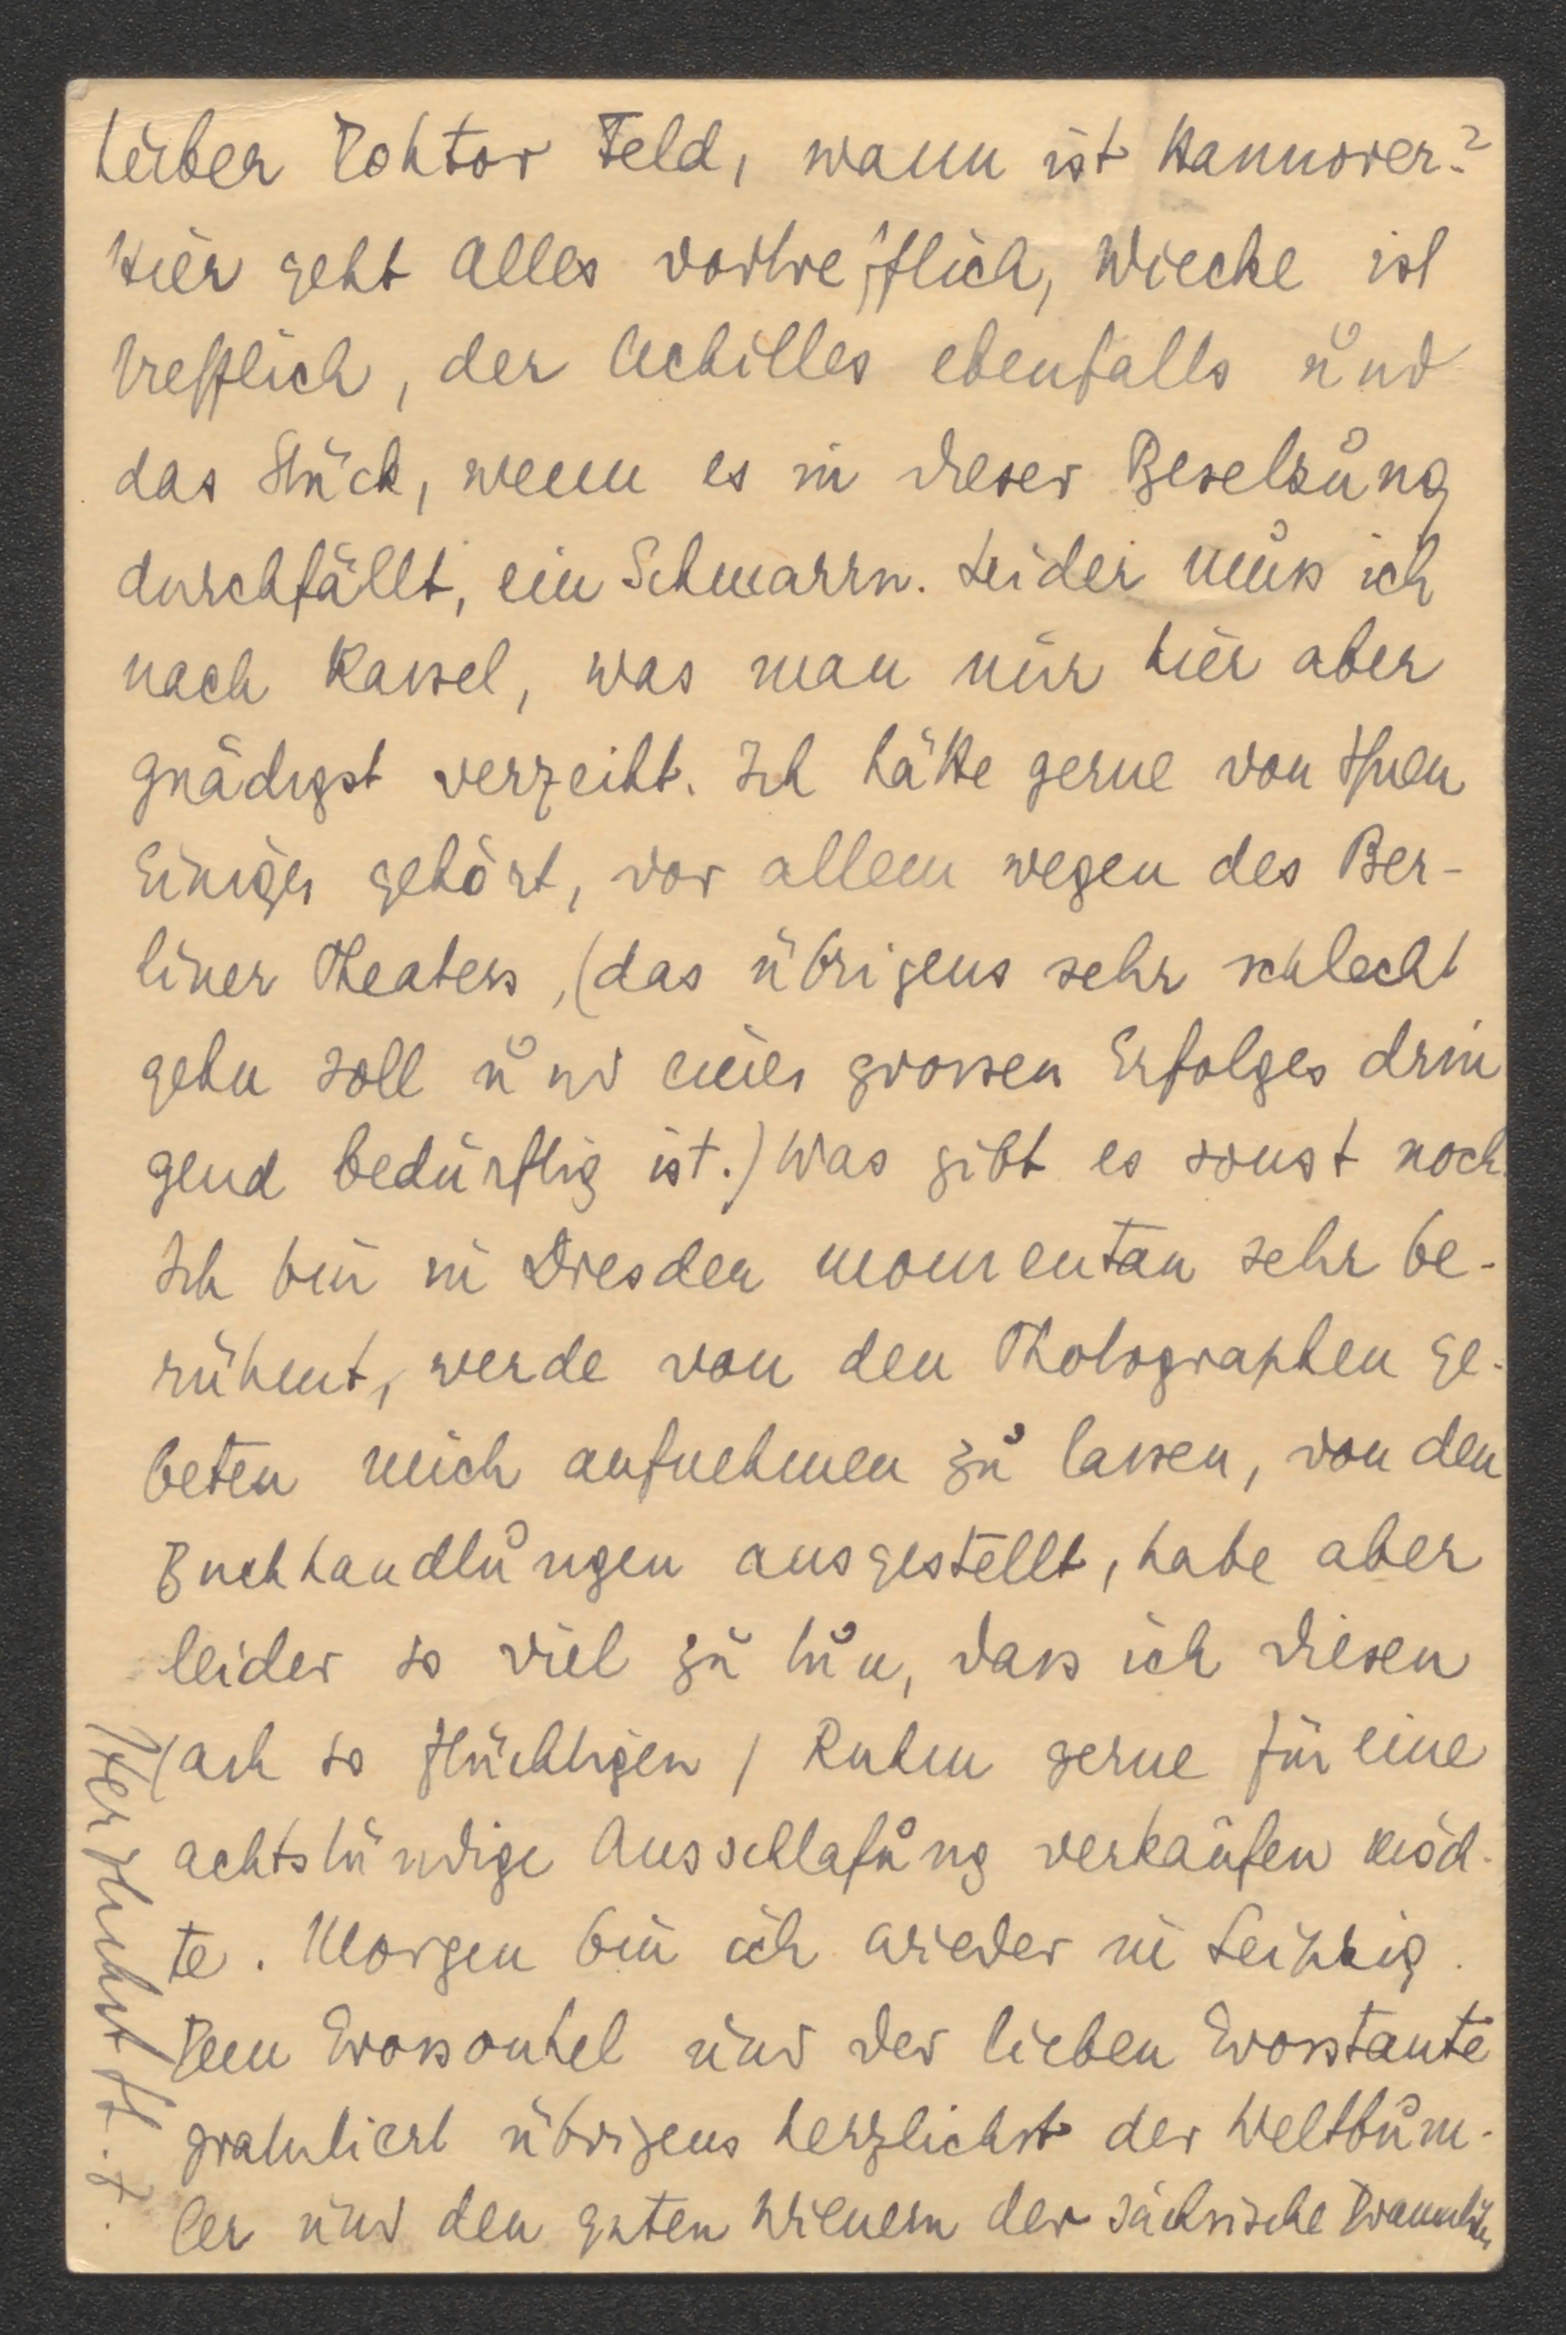 Lieber Doktor Feld, wann ist Hannover?
Hier geht alles vortrefflich, Wiecke ist
trefflich, der Achilles ebenfalls und
das Stück, wenn es in dieser Besetzung
durchfällt, ein Schmarrn. Leider muss ich
nach Kassel, was man mir hier aber
gnädigst verzeiht. Ich hätte gerne von Ihnen
Einiges gehört, vor allem wegen des Ber-
liner Theaters, (das übrigens sehr schlecht
gehn soll und eines grossen Erfolges drin
gend bedürftig ist.) Was gibt es sonst noch
Ich bin in Dresden momentan sehr be-
rühmt, werde von den Photographen ge-
beten mich aufnehmen zu lassen, von den
Buchhandlungen ausgestellt, habe aber
leider so viel zu tun, dass ich diesen
(ach so flüchtigen) Ruhm gerne für eine
achtstündige Ausschlafung verkaufen möch-
te. Morgen bin ich wieder in Leipzig.
Dem Grossonkel und der lieben Grosstante
gratuliert übrigens herzlichst der Weltbum-
ler und den guten Wienern der sächsische
Herzlichst